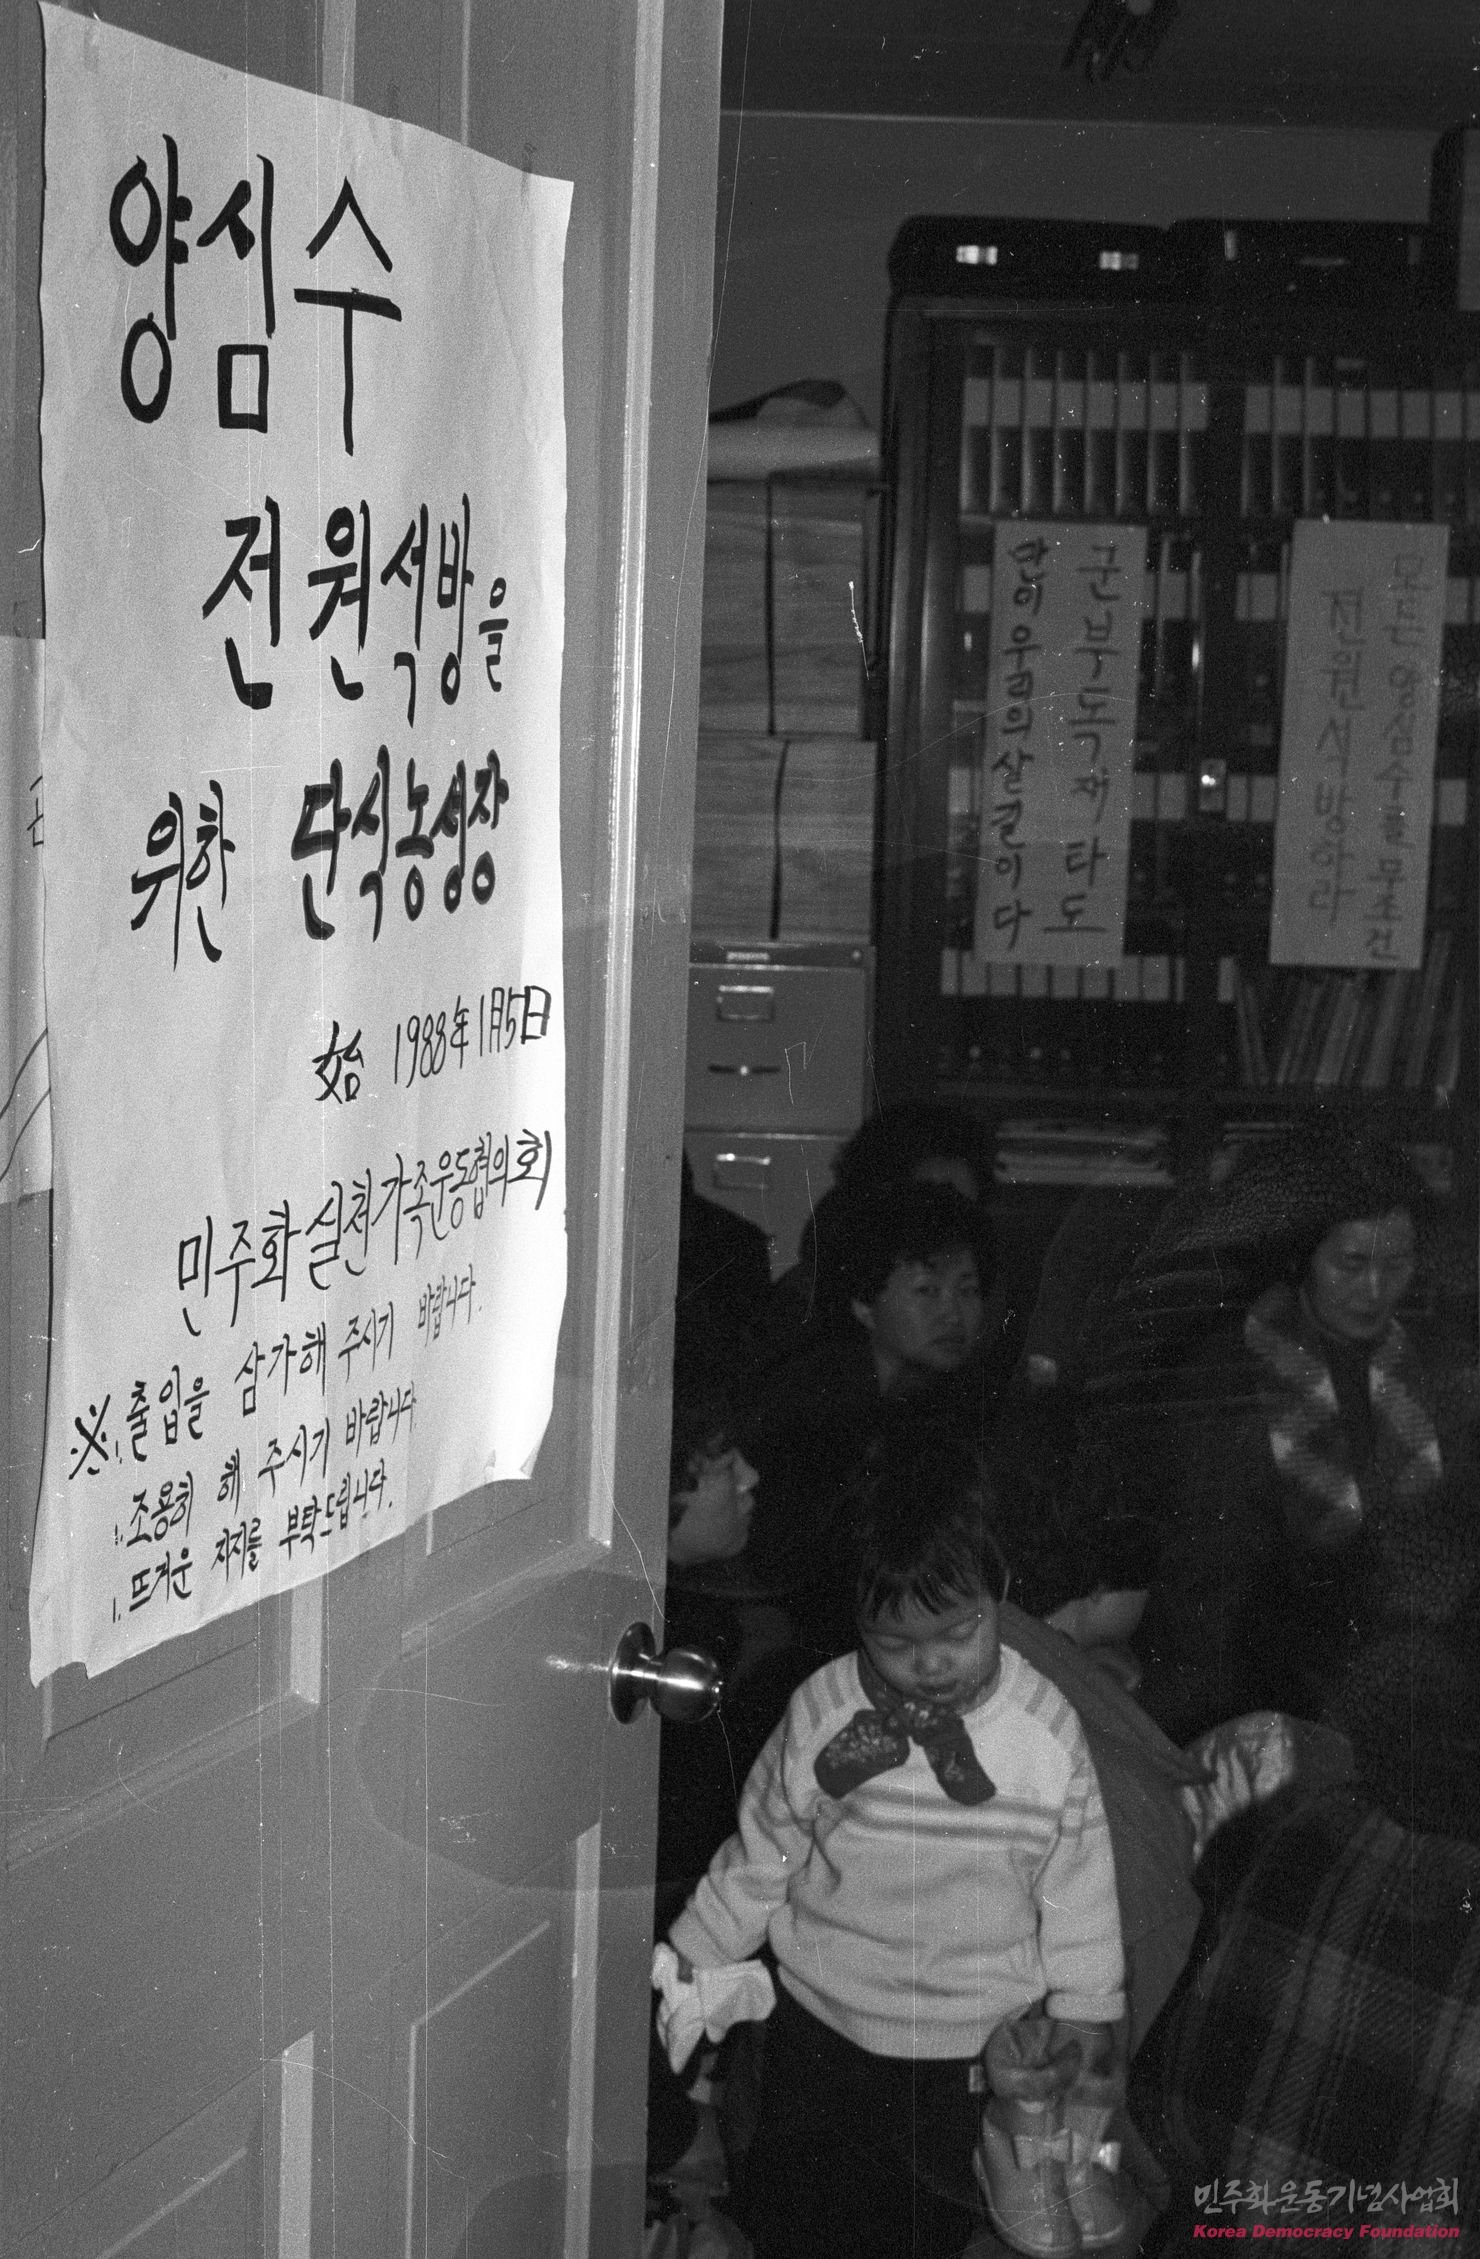 양심수
전원석방을
위한 단식농성장
始 1988年 1月 5日
민주화실천가족운동협의회
※ 1. 출입을 삼가해 주시기 바랍니다.
1. 조용히 해 주시기 바랍니다.
1. 뜨거운 지지를 부탁드립니다.
군부독재타도
만이 우리의 살길이다
모든 양심수를 무조건
전원석방하라
민주화운동기념사업회
Korea Democracy Foundation